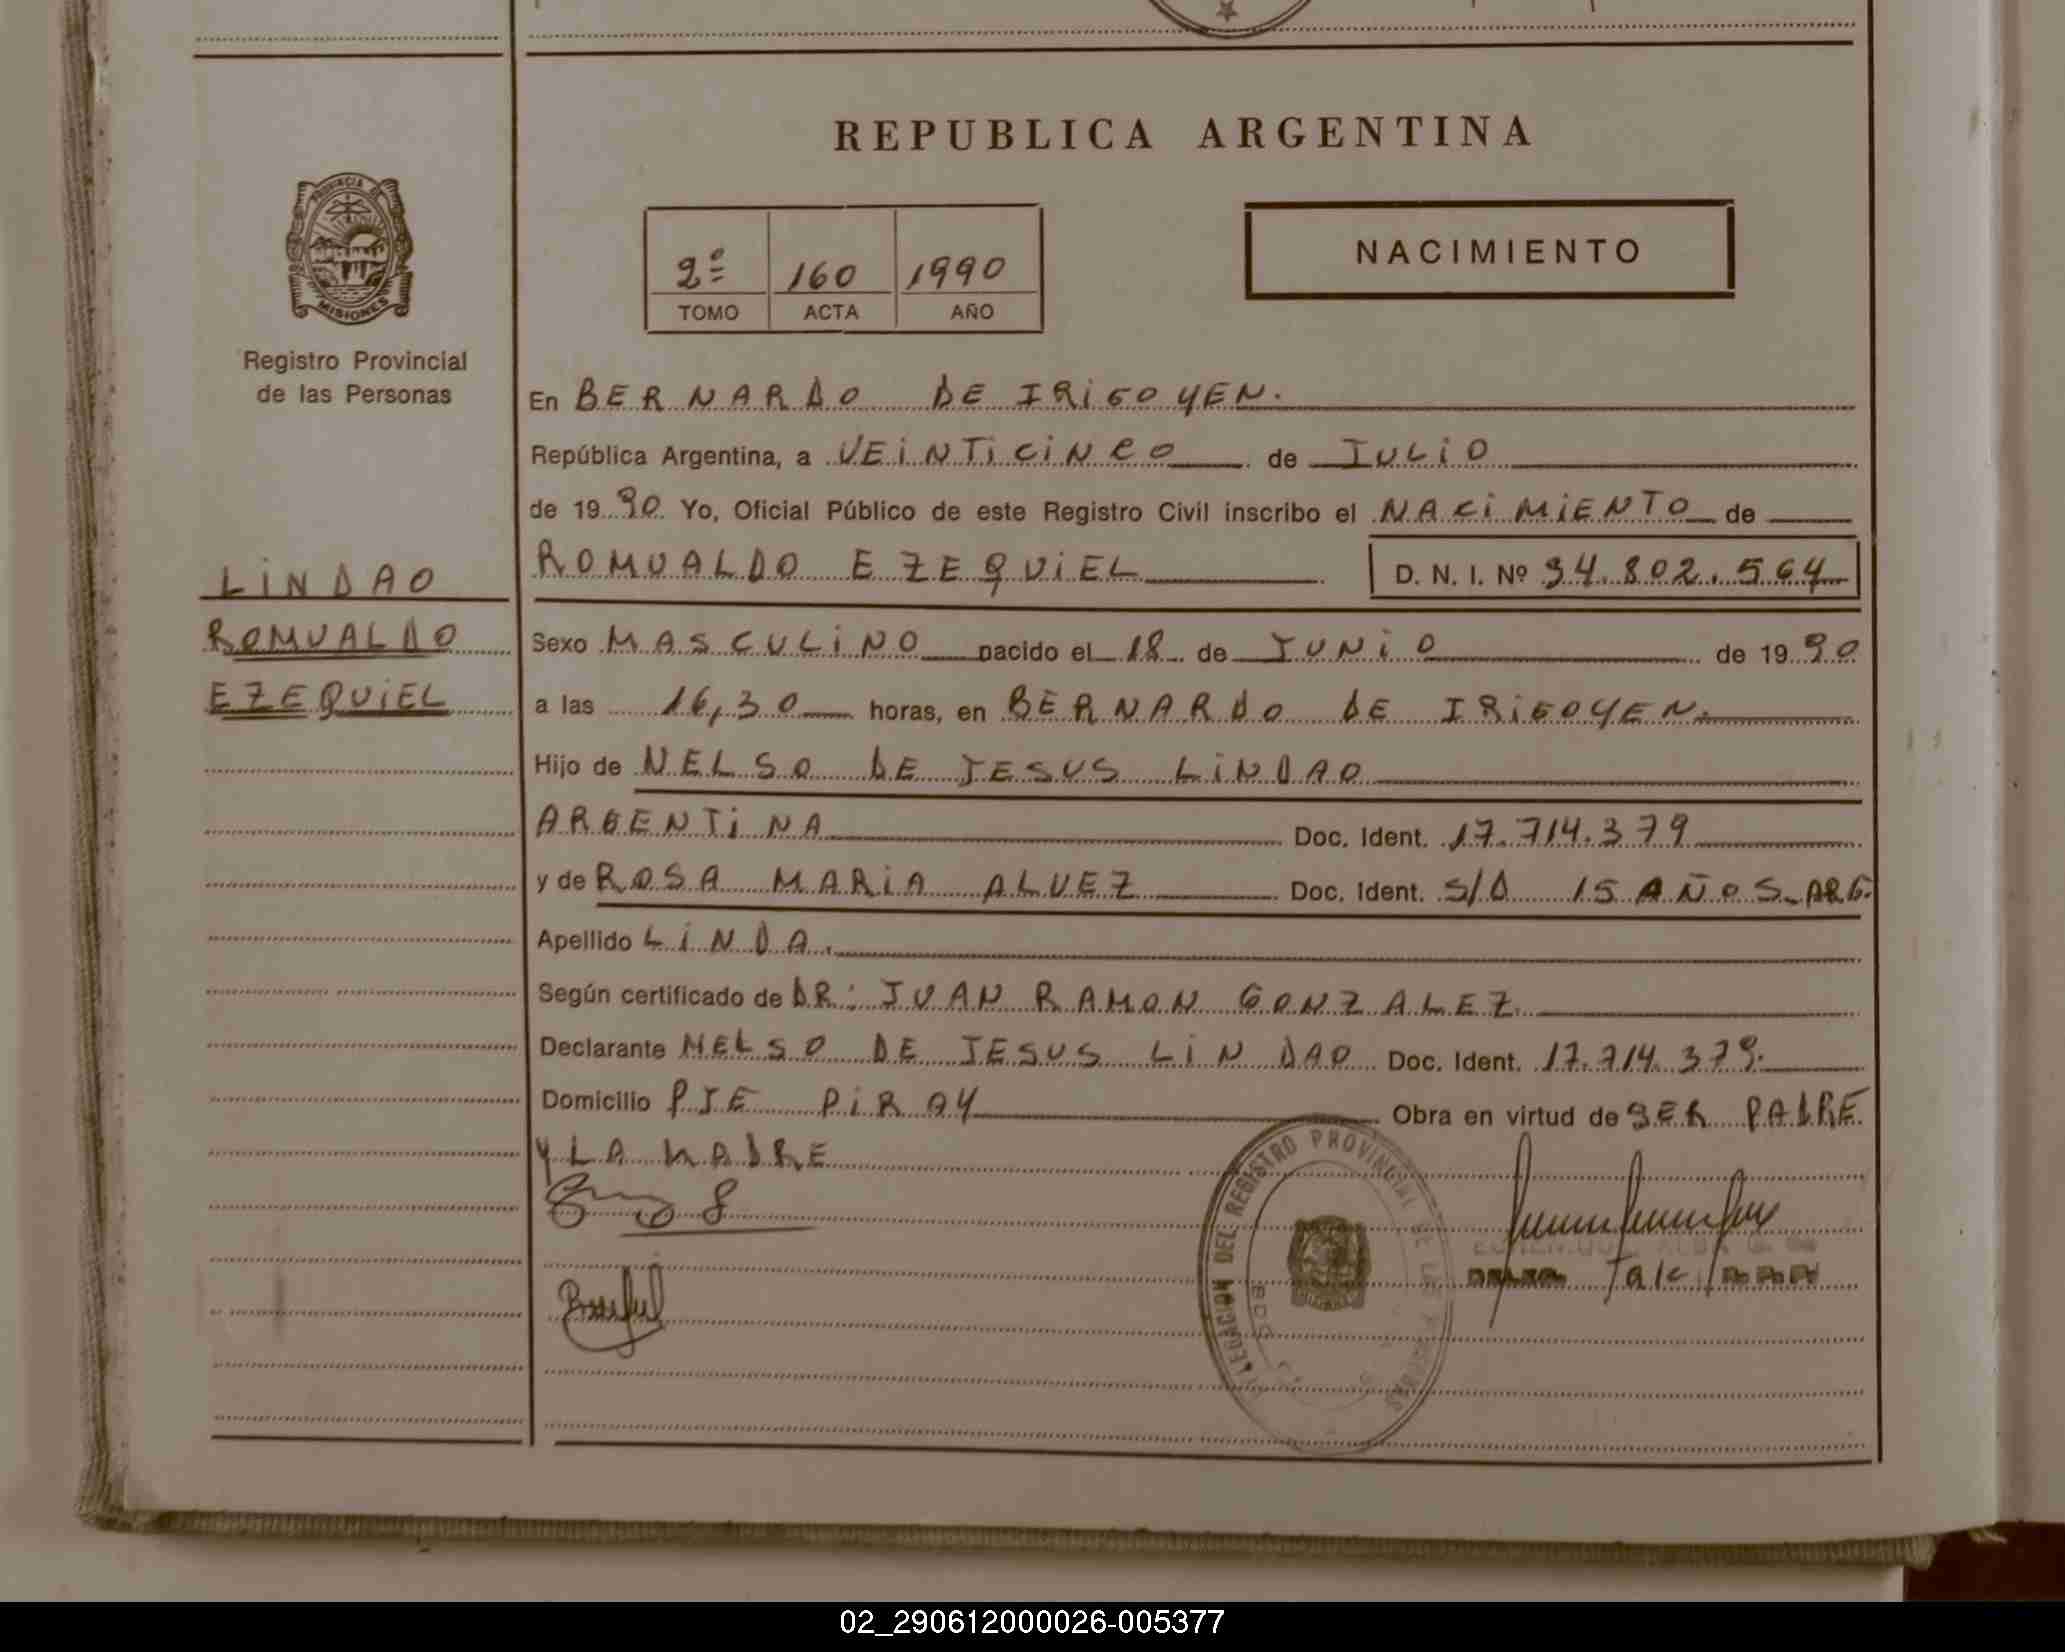 REPUBLICA ARGENTINA
PROVINCIA DE
MISIONES
Registro Provincial
de las Personas
2º 160 1990
TOMO ACTA AÑO
NACIMIENTO
En BERNARDO DE IRIGOYEN.
República Argentina, a VEINTICINCO de JULIO
de 1990 Yo, Oficial Público de este Registro Civil inscribo el NACIMIENTO de
ROMUALDO EZEQUIEL D. N. I. Nº 34.802.564
LINDAO
ROMUALDO
EZEQUIEL
Sexo MASCULINO nacido el 18 de JUNIO de 1990
a las 16,30 horas, en BERNARDO DE IRIGOYEN.
Hijo de NELSO DE JESUS LINDAO
ARGENTINA Doc. Ident. 17.714.379
y de ROSA MARIA ALVEZ Doc. Ident. S/D 15 AÑOS-ARG.
Apellido LINDA.
Según certificado de DR: JUAN RAMON GONZALEZ
Declarante NELSO DE JESUS LINDAO Doc. Ident. 17.714.379.
Domicilio PJE PIRAY Obra en virtud de SER PADRE
Y LA MADRE
DEL REGISTRO PROVINCIAL DE LAS
02_290612000026-005377